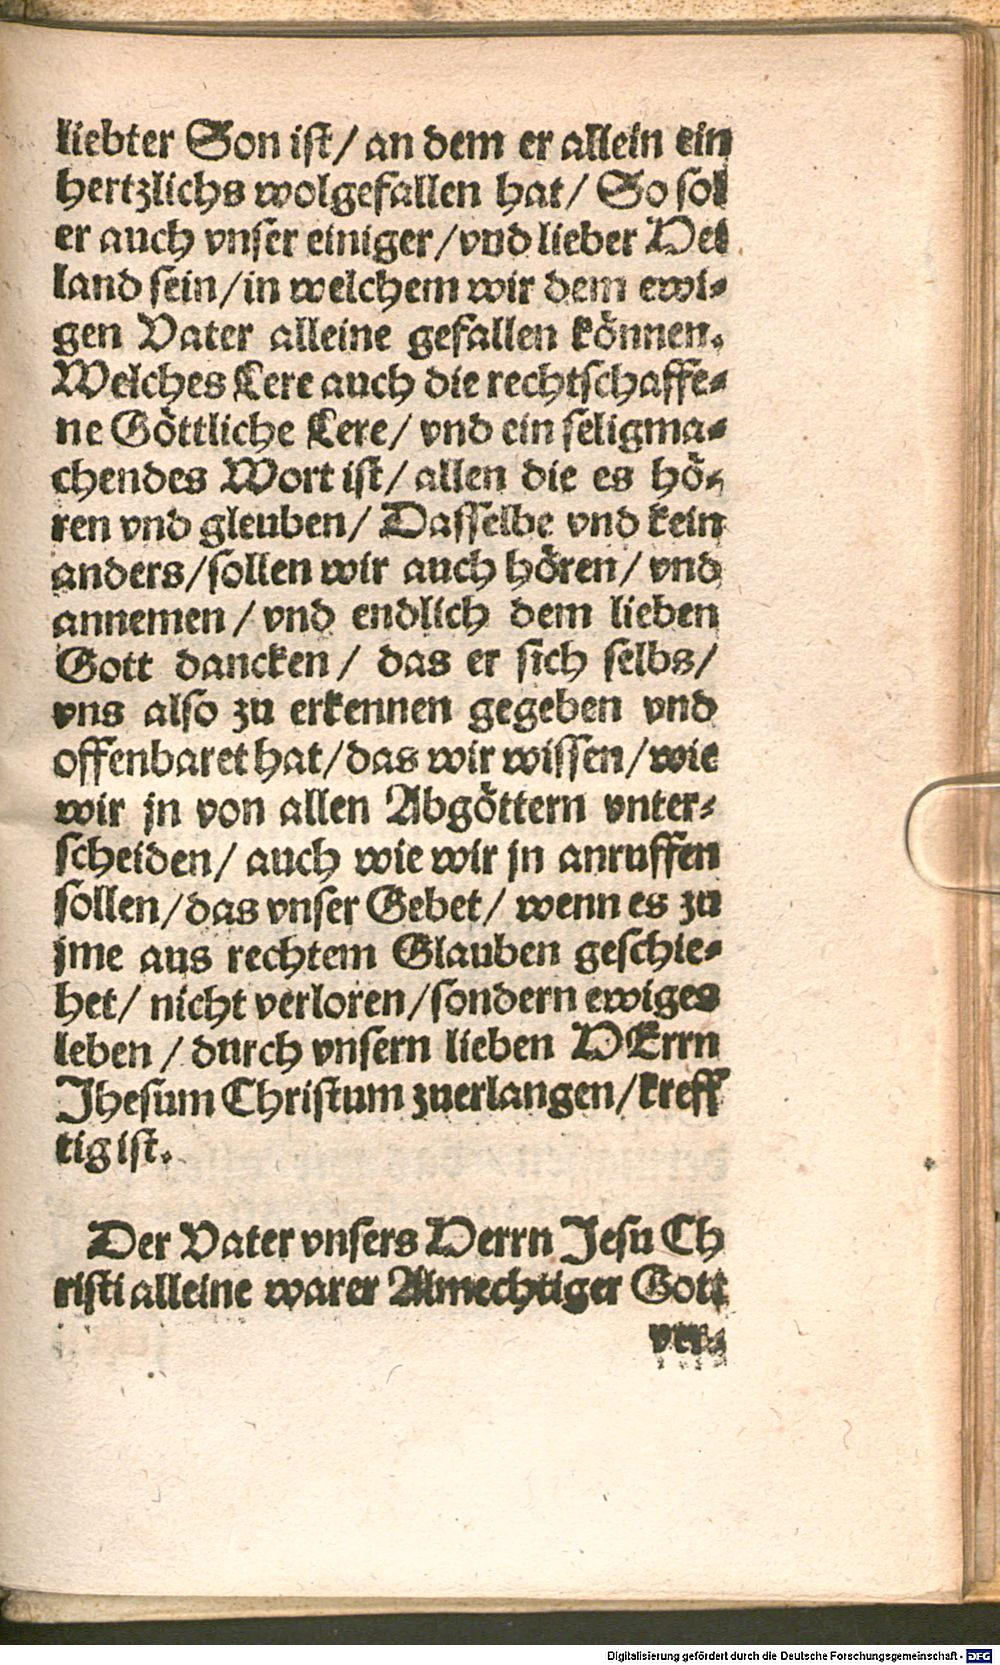 liebter Son ist/ an dem er allein ein
hertzlichs wolgefallen hat/ So sol
er auch vnser einiger/ vnd lieber Hei
land sein/ in welchem wir dem ewi-
gen Vater alleine gefallen können.
Welches Lere auch die rechtschaffe-
ne Göttliche Lere/ vnd ein seligma-
chendes Wort ist/ allen die es hö-
ren vnd gleuben/ Dasselbe vnd kein
anders/ sollen wir auch hören/ vnd
annemen/ vnd endlich dem lieben
Gott dancken/ das er sich selbs/
vns also zu erkennen gegeben vnd
offenbaret hat/ das wir wissen/ wie
wir jn von allen Abgöttern vnter-
scheiden/ auch wie wir jn anruffen
sollen/ das vnser Gebet/ wenn es zu
jme aus rechtem Glauben geschie-
het/ nicht verloren/ sondern ewiges
leben/ durch vnsern lieben HErrn
Jhesum Christum zuerlangen/ kreff
tig ist.
Der Vater vnsers Herrn Jesu Ch
risti alleine warer Almechtiger Gott
ver-
Digitalisierung gefördert durch die Deutsche Forschungsgemeinschaft - DFG